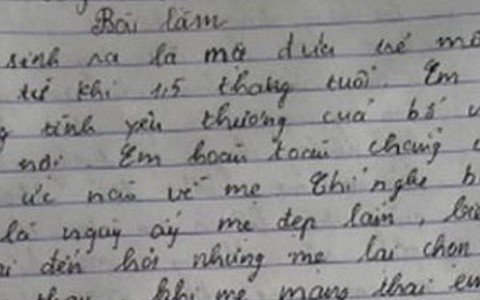 Bài làm
sinh ra là một đứa trẻ mồ
từ khi 1,5 tháng tuổi. Em
tình yêu thương của bố
nội. Em hoàn toàn chẳng
ức nào về mẹ. Chỉ nghe b
là ngày ấy mẹ đẹp lắm,
đến hỏi nhưng mẹ lại chọn
khi mẹ mang thai em